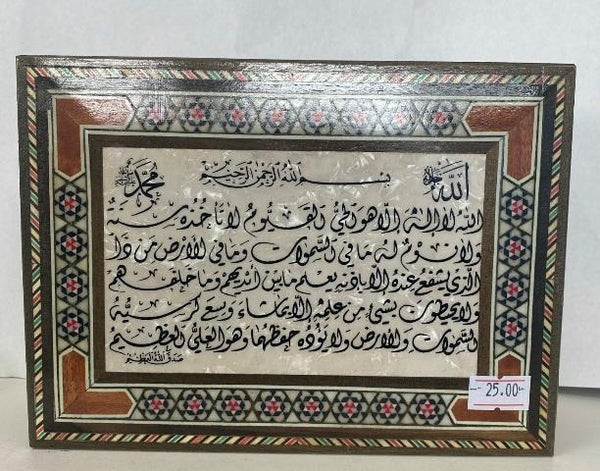 الله جل جلاله بسم الله الرحمن الرحيم محمد
الله لا إله إلا هو الحي القيوم لا تأخذه سنة
ولا نوم له ما في السموات وما في الأرض من ذا
الذي يشفع عنده إلا بإذنه يعلم ما بين أيديهم وما خلفهم
ولا يحيطون بشيء من علمه إلا بما شاء وسع كرسيه
السموات والأرض ولا يؤده حفظهما وهو العلي العظيم
صدق الله العظيم
25.00